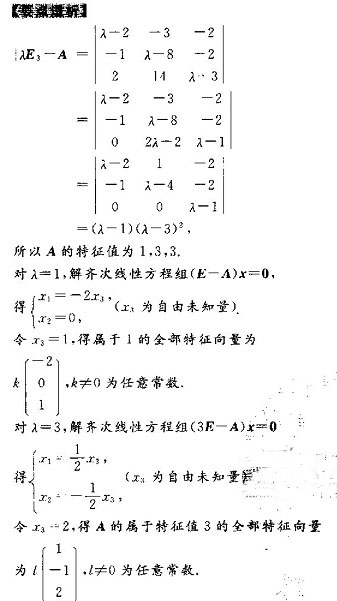 【要点析】
|λE₃-A| = | λ-2 -3 -2 |
| -1 λ-8 -2 |
| 2 14 λ+3 |
= | λ-2 -3 -2 |
| -1 λ-8 -2 |
| 0 2λ-2 λ-1 |
= | λ-2 1 -2 |
| -1 λ-4 -2 |
| 0 0 λ-1 |
=(λ-1)(λ-3)²,
所以 A 的特征值为 1,3,3.
对 λ=1,解齐次线性方程组(E-A)x=0,
得{ x₁=-2x₃, x₂=0, (x₃ 为自由未知量).
令 x₃=1,得属于 1 的全部特征向量为
k ( -2 0 1 ) ,k≠0 为任意常数.
对 λ=3,解齐次线性方程组(3E-A)x=0
得{ x₁=1/2 x₃, x₂=-1/2 x₃, (x₃ 为自由未知量)
令 x₃=2,得 A 的属于特征值 3 的全部特征向量
为 l ( 1 -1 2 ) ,l≠0 为任意常数.